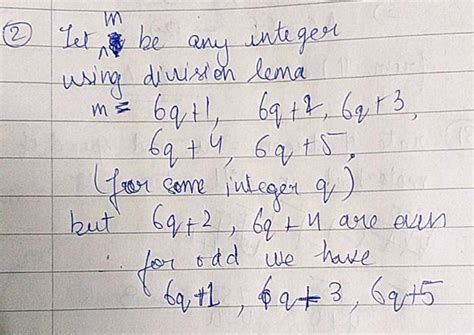 ② Let m be any integer
using division lema
m = 6q+1, 6q+2, 6q+3,
6q+4, 6q+5.
(for some integer q)
but 6q+2, 6q+4 are even
∴ for odd we have
6q+1, 6q+3, 6q+5